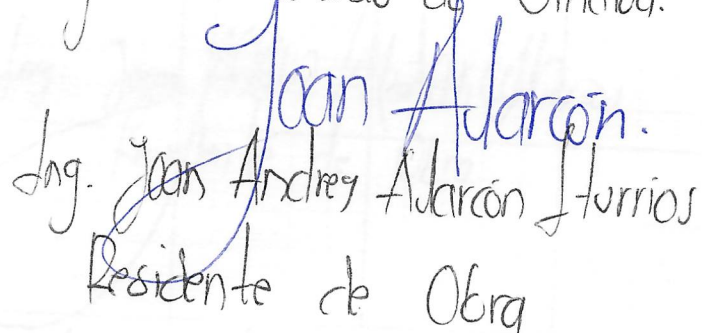 de
Joan Alarcón.
Ing. Joan Andrey Alarcón Iturrios
Residente de Obra